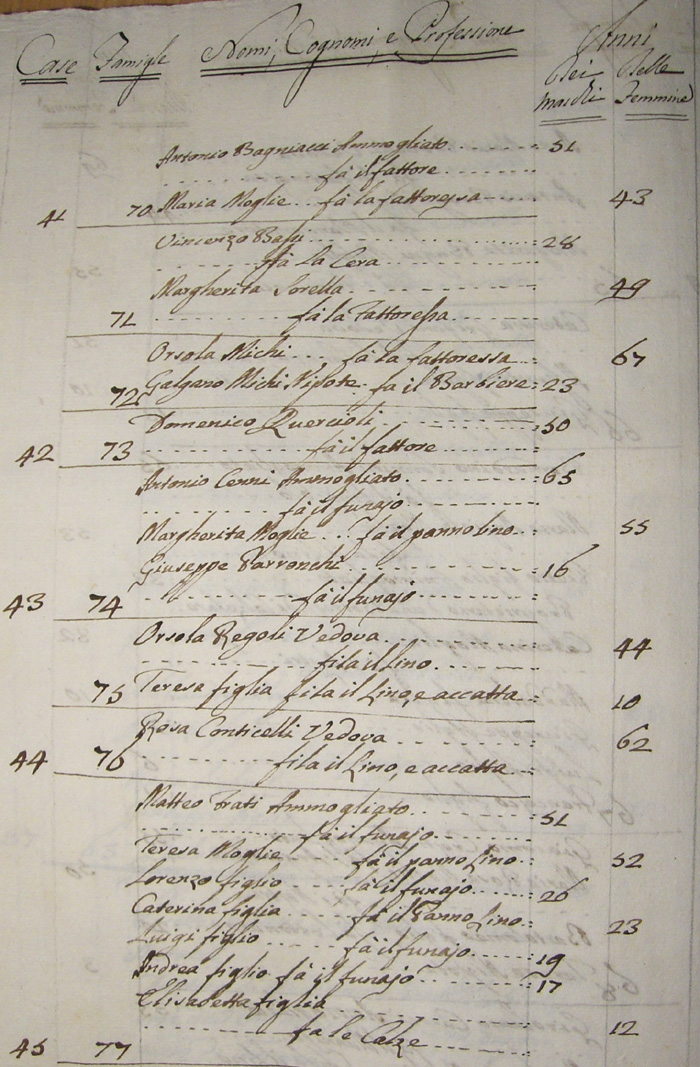 Case Famigle Nomi, Cognomi, e Professione Anni
Dei Maschi Delle Femmine
Antonio Bagniacci Ammogliato 51
fà il fattore
41 70 Maria Moglie fà la fattoressa 43
Vincenzo 28
fà La Cera
Margherita Sorella 49
71 fà la fattoressa
Orsola Michi fà la fattoressa 67
72 Galgano Michi Nipote fà il Barbiere 23
Domenico Quercioli 50
42 73 fà il fattore
Antonio Cenni Ammogliato 65
fà il funajo
Margherita Moglie fà il panno lino 55
Giuseppe Parronchi 16
43 74 fà il funajo
Orsola Regoli Vedova 44
fila il Lino
75 Teresa figlia fila il Lino, e accatta 10
Rosa Conticelli Vedova 62
44 76 fila il Lino, e accatta
Matteo Frati Ammogliato 51
fà il funajo
Teresa Moglie fà il panno Lino 52
Lorenzo figlio fà il funajo 26
Caterina figlia fà il Panno Lino 23
Luigi figlio fà il funajo 19
Andrea figlio fà il funajo 17
Elisabetta figlia
45 77 fa le Calze 12